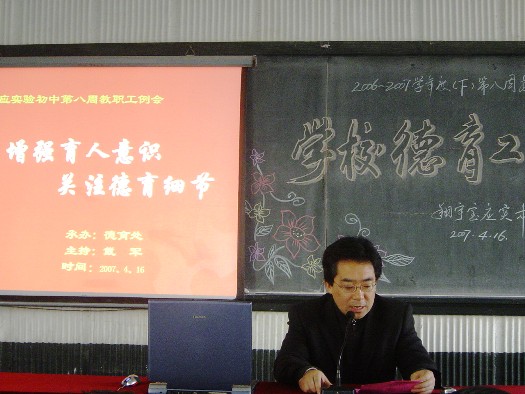 应实验初中第八周教职工例会
增强育人意识
关注德育细节
承办：德育处
主持：戴 军
时间：2007.4.16
2006-2007学年度(下)第八周
学校德育工
翔宇宝应实
2007.4.16.